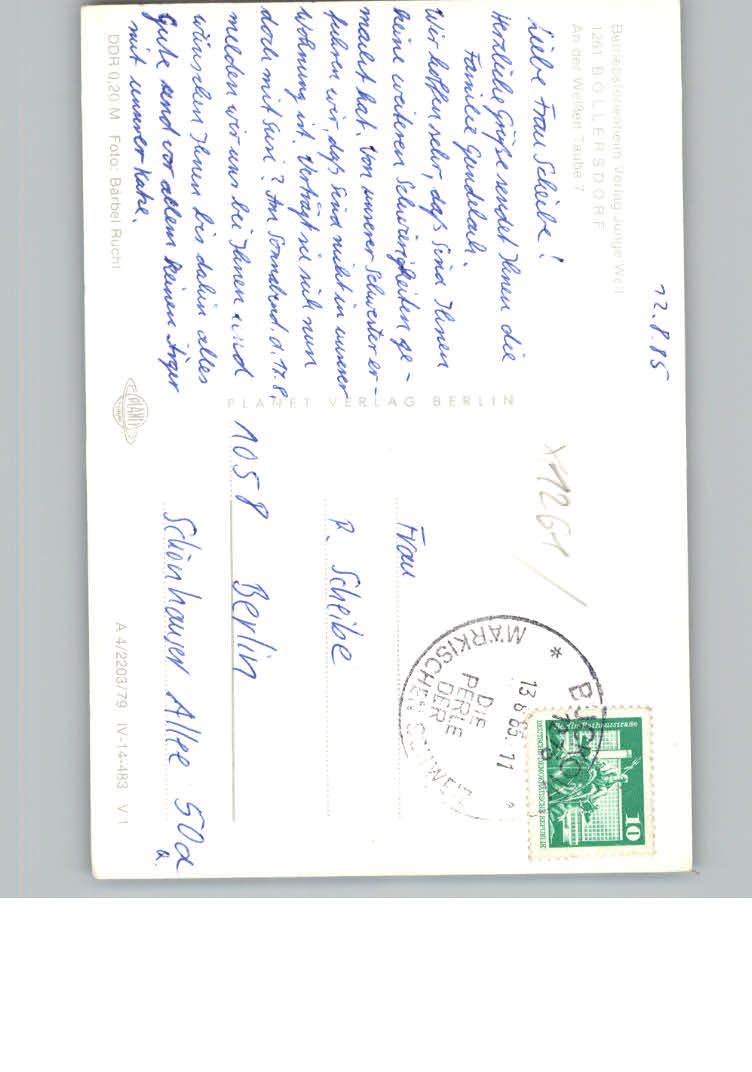 Betriebsferienheim Verlag Junge Welt
1261 BOLLERSDORF
An der Weißen Taube 7
12.8.85
Liebe Frau Scheibe!
Herzliche Grüße sendet Ihnen die
Familie Gundelach.
Wir hoffen sehr, daß Sina Ihnen
keine weiteren Schwierigkeiten ge-
macht hat. Von unserer Schwester er-
fuhren wir, daß Sina nicht in unserer
Wohnung ist. Verträgt sie sich nun
doch mit Susi? Am Sonnabend, d. 17.8.
melden wir uns bei Ihnen und
wünschen Ihnen bis dahin alles
Gute und vor allem keinen Ärger
mit unserer Katze.
DDR 0,20 M Foto: Bärbel Rucht
PLANET VERLAG BERLIN
PLANET
X1261/
Frau
R. Scheibe
1058 Berlin
Schönhauser Allee 50a
a.
A 4/2203/79 IV-14-483 V 1
* BUCKOW
1276
MÄRKISCHEN SCHWEIZ
13.8.85.11
DIE
PERLE
DER
Berlin-Rathausstraße
10
DEUTSCHE DEMOKRATISCHE REPUBLIK